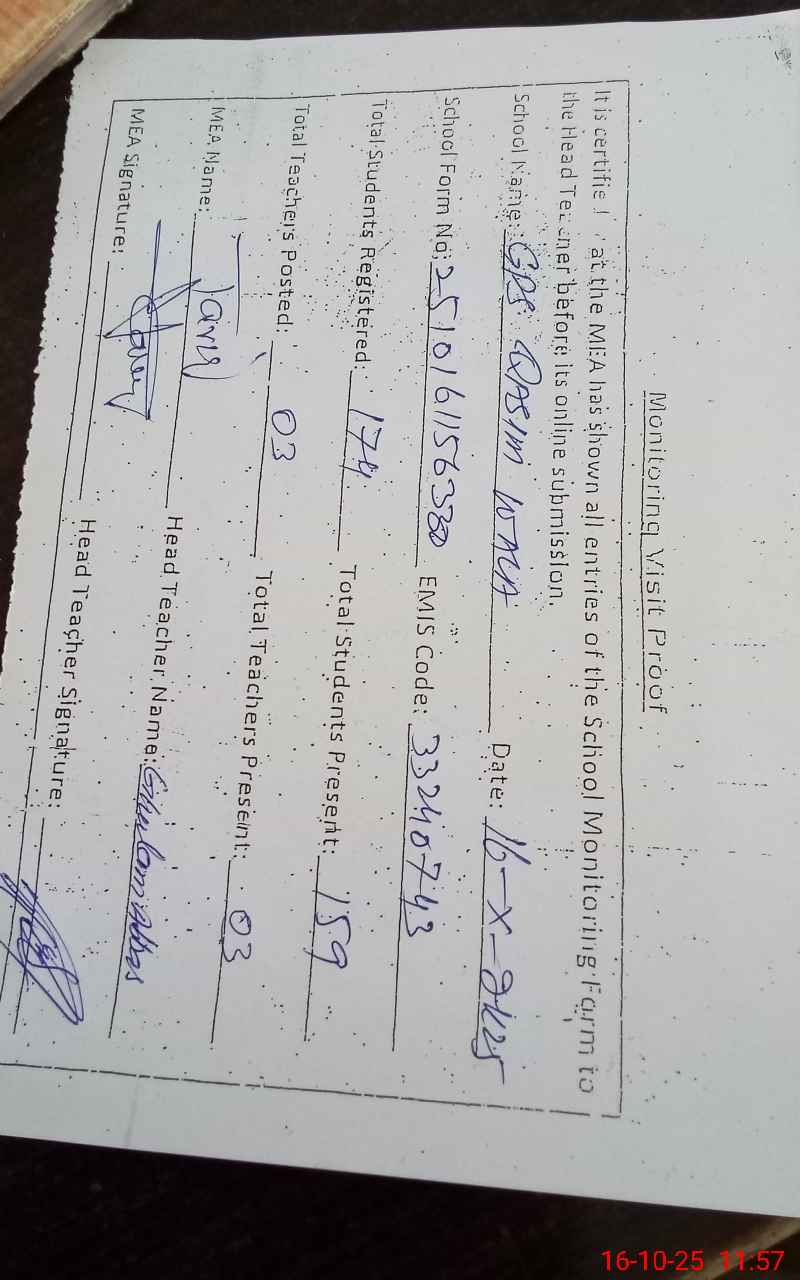 Monitoring Visit Proof
It is certified that the MEA has shown all entries of the School Monitoring Form to
the Head Teacher before its online submission.
School Name: GPS QASIM WALA Date: 16-X-2k25
School Form No: 251016115633 EMIS Code: 33240743
Total Students Registered: 174 Total Students Present: 159
Total Teachers Posted: 03 Total Teachers Present: 03
MEA Name: Tariq Head Teacher Name: Ghulam Abbas
MEA Signature: Head Teacher Signature:
16-10-25 11:57